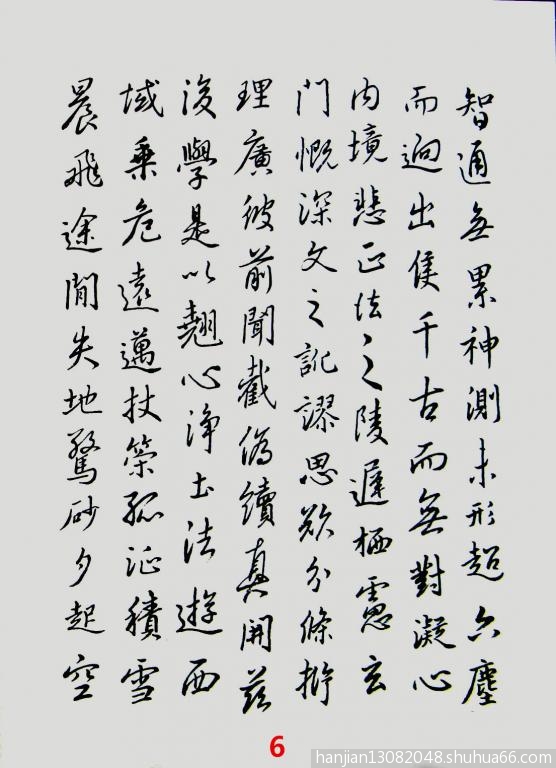 智通無累神測未形超六塵
而迥出隻千古而無對凝心
內境悲正法之陵遲栖慮玄
門慨深文之訛謬思欲分條析
理廣彼前聞截偽續真開茲
後學是以翹心淨土法遊西
域乗危遠邁杖策孤征積雪
晨飛途閒失地驚砂夕起空
6
hanjian13082048.shuhua66.com